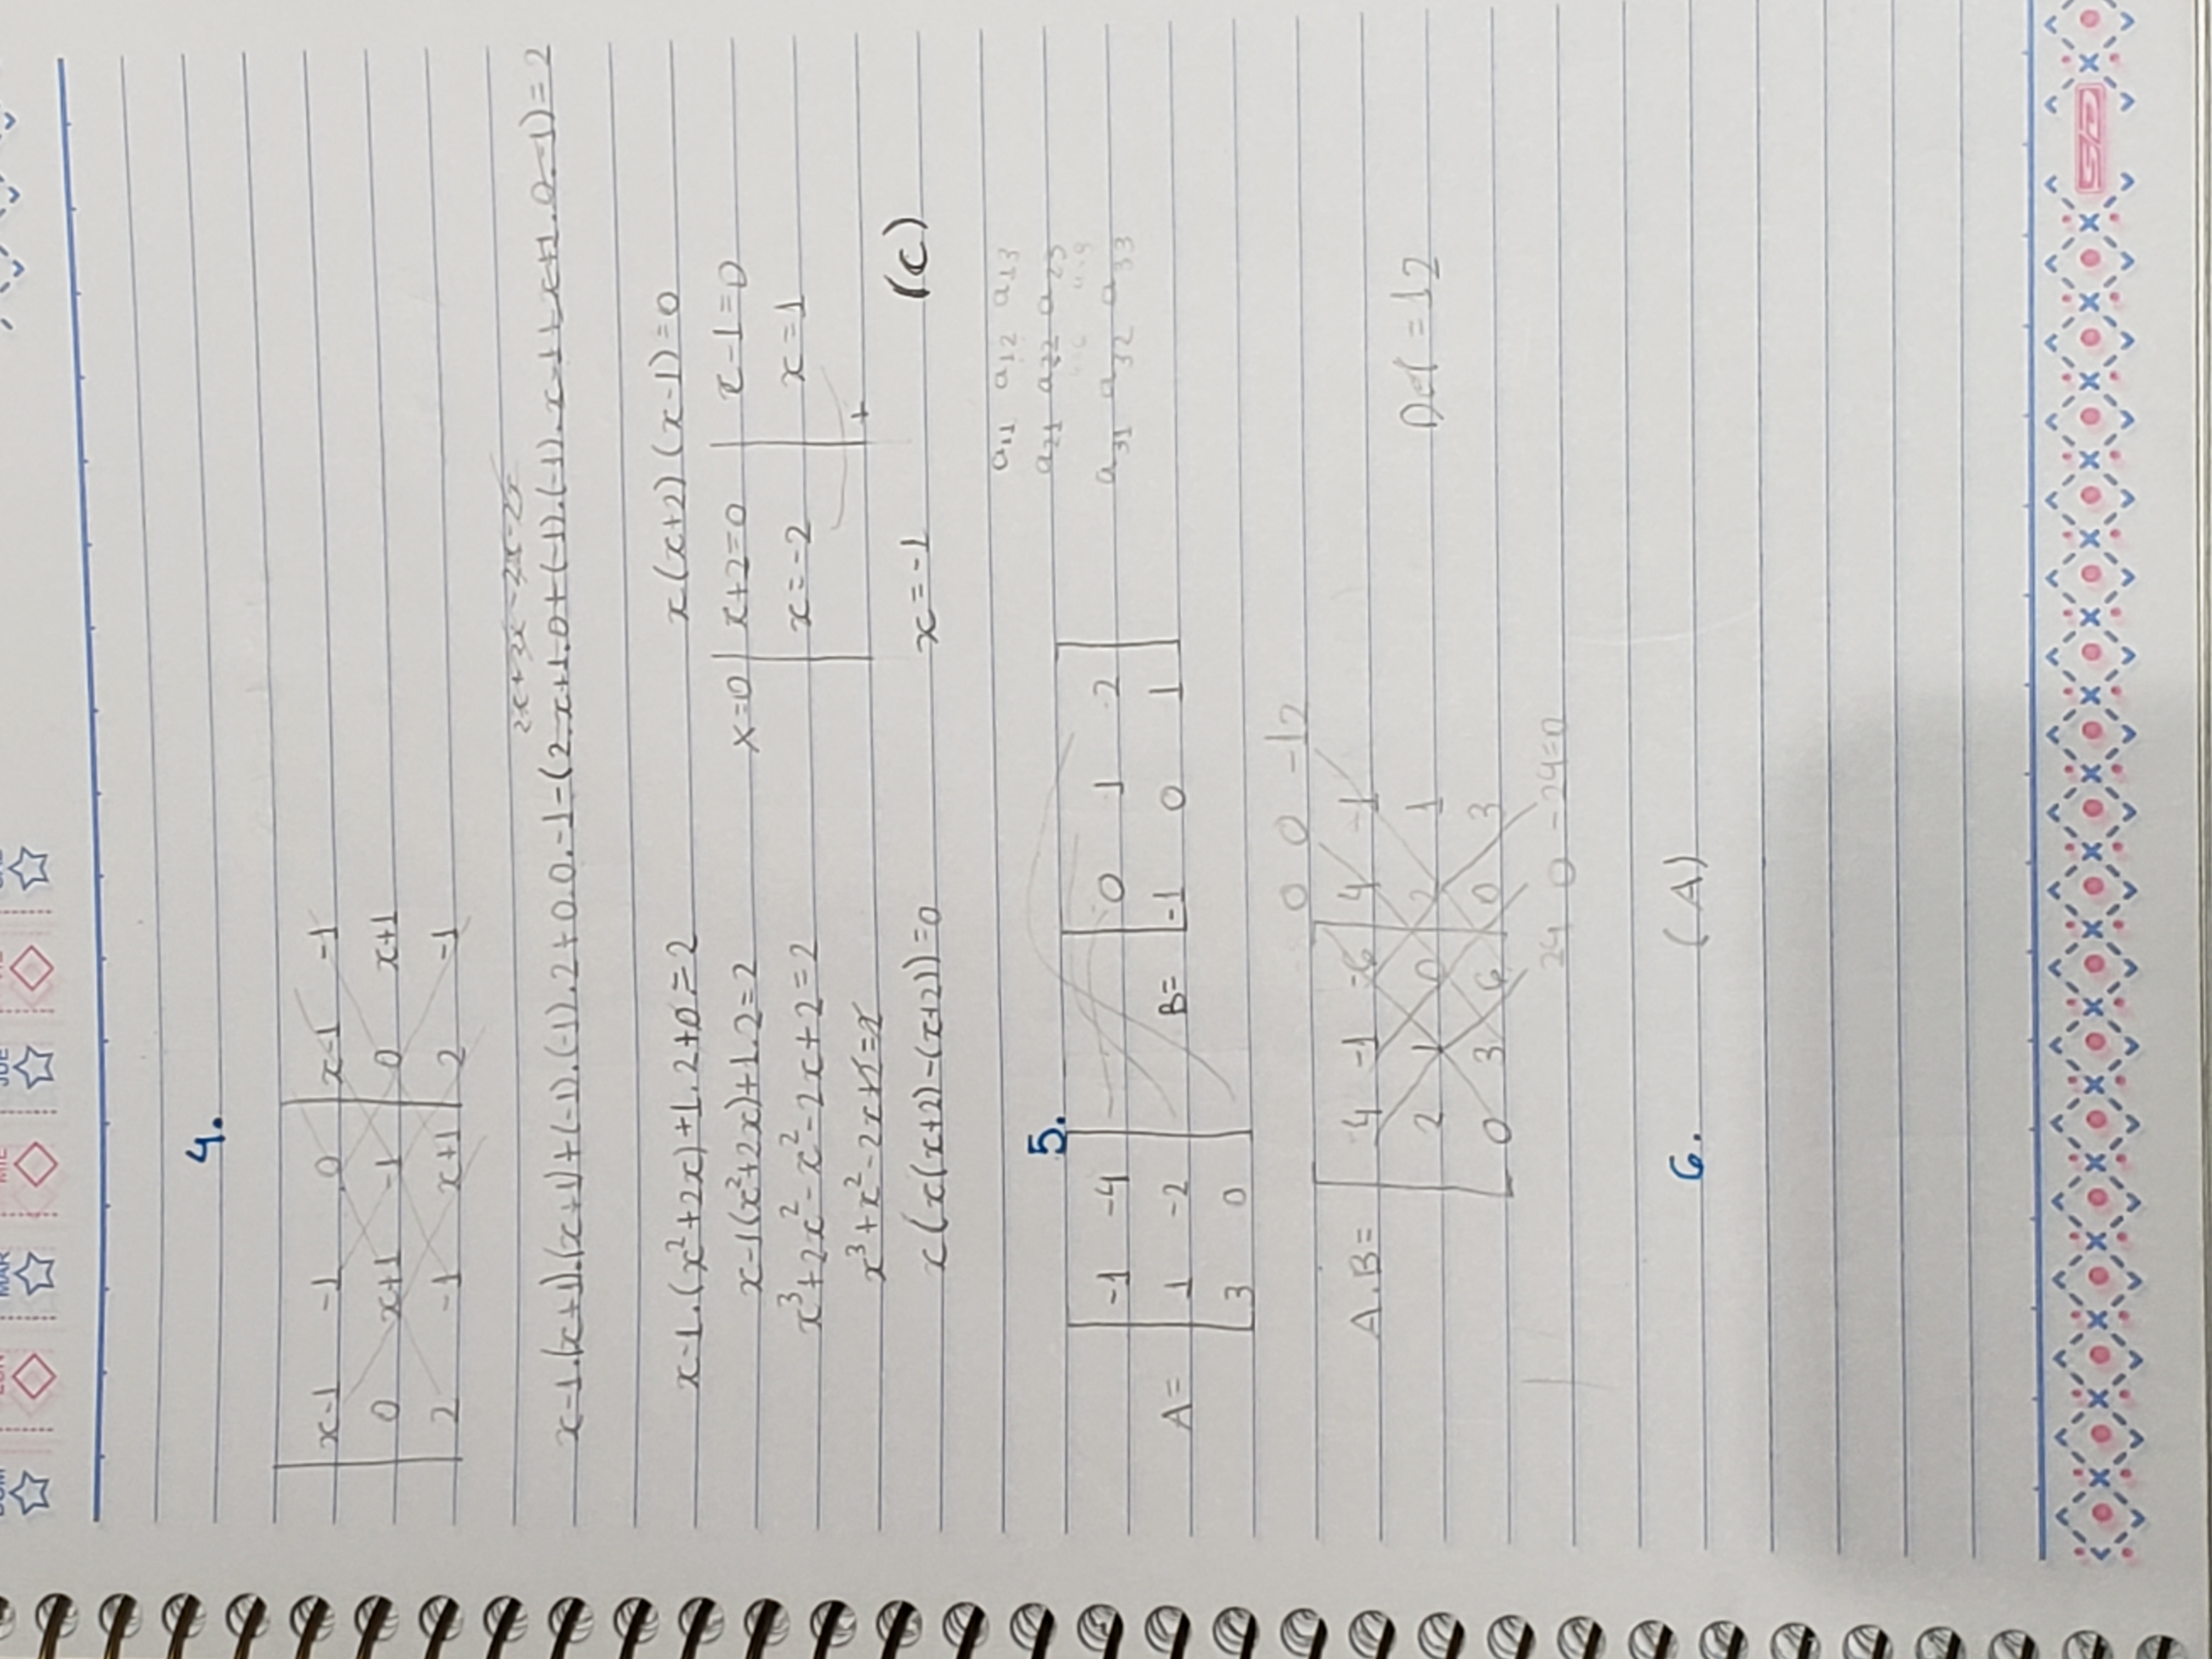 DOM LUN MAR MIE JUE VIE SAB
4.
x-1 -1 0 x-1 -1
0 x+1 -1 0 x+1
2 -1 x+1 2 -1
x-1.(x+1).(x+1)+(-1).(-1).2+0.0.-1-(2.x+1.0+(-1).(-1).x-1+x+1.0.-1)=2
x-1.(x²+2x)+1.2+0=2
x-1(x²+2x)+1.2=2
x³+2x²-x²-2x+2=2
x³+x²-2x+2=2
x(x(x+2)-(x+2))=0
x(x+2)(x-1)=0
x=0 x+2=0 x-1=0
x=-2 x=1
+
x=-1 (C)
a11 a12 a13
a21 a22 a23
a31 a32 a33
5.
-1 -4 0 1 2
A= 1 -2 B= -1 0 1
3 0
0 0 -12
A.B= 4 -1 -6 4 -1
2 1 0 2 1
0 3 6 0 3
24 0 -24=0
Det=12
6. (A)